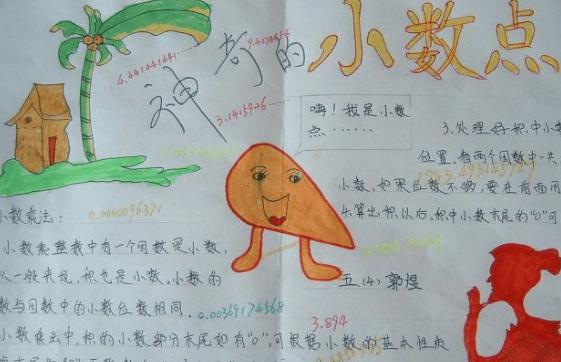 神奇的小数点
4.441441441……
3.1415926……
嗨！我是小数
点……
3.处理好积中小数
位置,有两个因数中一共
小数,如果位数不够,要在前面用
4.算出积以后,积中小数末尾的"0"可
小数乘法:
0.0000096371
小数乘整数中有一个因数是小数,
从一般来说,积也是小数,小数的
数与因数中的小数位数相同.
0.00369174568
小数乘法中,积的小数部分末尾如有"0",可根据小数的基本性质
五.(4) 郭煜
3.894